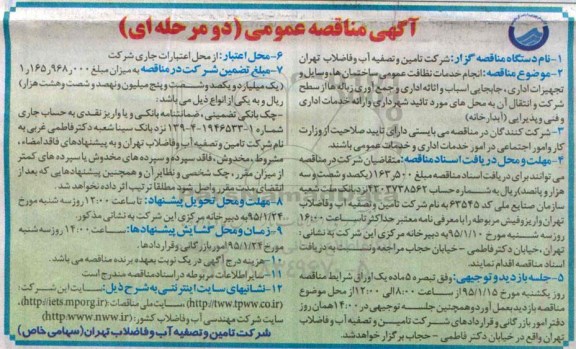 آگهی مناقصه عمومی (دو مرحله ای)
۱- نام دستگاه مناقصه گزار: شرکت تامین و تصفیه آب و فاضلاب تهران
۲- موضوع مناقصه: انجام خدمات نظافت عمومی ساختمان ها، وسایل و
تجهیزات اداری، جابجایی اسباب و اثاثه اداری و جمع آوری زباله ها از سطح
شرکت و انتقال آن به محل های مورد تائید شهرداری و ارائه خدمات اداری
و فنی و پذیرایی (آبدارخانه)
۳- شرکت کنندگان در مناقصه می بایستی دارای تأیید صلاحیت از وزارت
کار و امور اجتماعی در امور خدمات اداری و خدمات عمومی باشند.
۴- مهلت و محل دریافت اسناد مناقصه: متقاضیان شرکت در مناقصه
می توانند برای دریافت اسناد مناقصه مبلغ ۱۶۳,۵۰۰ (یکصد و شصت و سه
هزار و پانصد) ریال به شماره حساب ۴۲۰۳۷۳۸۵۶۲ نزد بانک ملت شعبه
سازمان صنایع ملی کد ۶۳۵۴۵ به نام شرکت تامین و تصفیه آب و فاضلاب
تهران واریز و فیش مربوطه را با معرفی نامه معتبر حداکثر تا ساعت ۱۶:۰۰
روزه سه شنبه مورخ ۹۵/۱/۱۰ به دبیرخانه مرکزی این شرکت به نشانی :
تهران ، خیابان دکتر فاطمی - خیابان حجاب مراجعه و نسبت به دریافت
اسناد مناقصه اقدام نمایند.
۵- جلسه بازدید و توجیهی: وفق تبصره ۵ ماده یک اوراق شرایط مناقصه
روز یکشنبه مورخ ۹۵/۱/۱۵ از ساعت ۸:۰۰ الی ۱۲:۰۰ از محل موضوع
مناقصه بازدید بعمل آورد و همچنین جلسه توجیهی در ۱۴:۰۰ همان روز
دفتر امور بازرگانی و قراردادهای شرکت تامین و تصفیه آب و فاضلاب
تهران واقع در خیابان دکتر فاطمی - حجاب برگزار خواهد شد.
۶- محل اعتبار: از محل اعتبارات جاری شرکت
۷- مبلغ تضمین شرکت در مناقصه به میزان مبلغ ۱٫۱۶۵٫۹۶۸٫۰۰۰ ر
(یک میلیارد و یکصد و شصت و پنج میلیون و نهصد و شصت و هشت هزار)
ریال و به یکی از انواع ذیل می باشد:
-چک بانکی تضمینی، ضمانتنامه بانکی و یا واریز نقدی به حساب جاری
شماره ۱-۱۹۴۶۵۳۳-۴-۱۳۹ نزد بانک سینا شعبه دکتر فاطمی غربی به
نام شرکت تامین و تصفیه آب و فاضلاب تهران و به پیشنهادهای فاقد امضاء،
مشروط، مخدوش، فاقد سپرده و سپرده های مخدوش یا سپرده های کمتر
از میزان مقرر، چک شخصی و نظایر آن و همچنین پیشنهادهایی که بعد از
انقضای مدت مقرر واصل شود مطلقا ترتیب اثر داده نخواهد شد.
۸- مهلت و محل تحویل پیشنهاد: تا ساعت ۱۲:۰۰ روز سه شنبه مورخ
۹۵/۱/۲۴ به دبیرخانه مرکزی این شرکت به نشانی مذکور.
۹- زمان و محل گشایش پیشنهادها: ساعت ۱۴:۰۰ روز سه شنبه
مورخ ۹۵/۱/۲۴ امور بازرگانی و قراردادها.
۱۰- هزینه درج آگهی در یک نوبت بعهده برنده مناقصه می باشد.
۱۱- سایر اطلاعات مربوطه در اسناد مناقصه مندرج است
۱۲- نشانیهای سایت اینترنتی به شرح ذیل: سایت این شرکت:
(http://tww.tpww.co.ir) سایت ملی مناقصات: (http://iets.mporg.ir)
سایت شرکت مهندسی آب و فاضلاب کشور: (http.www.nww.ir)
شرکت تامین و تصفیه آب و فاضلاب تهران (سهامی خاص)